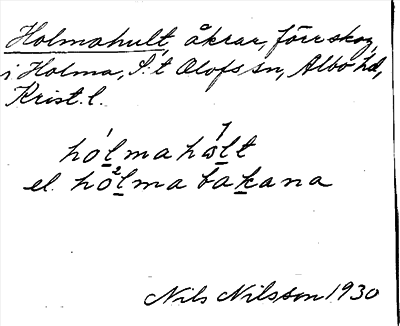 Holmahult, åkrar, förr skog,
i Holma, S:t Olofs sn, Albo hd,
Krist. l.
hólmahὼlt
el. hò²lmabakana
Nils Nilsson 1930